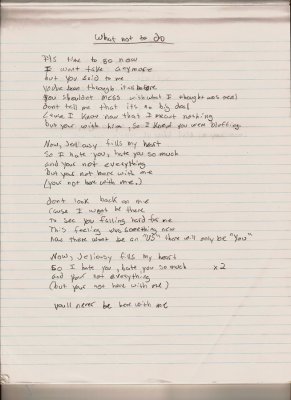 What not to do
It's time to go now
I wont take anymore
but you said to me
you've been through it all before
You shouldnt mess with what I thought was real
dont tell me that its no big deal
Cause I know now that I meant nothing
but your with him, so I knew you were bluffing.
Now, Jeliousy fills my heart
So I hate you, hate you so much
and your not everything
but your not here with me
(your not here with me.)
dont look back on me
Cause I wont be there
To see you falling hard for me
This feeling was something new
has there wont be an "US" there will only be "You"
Now, Jeliousy fills my heart
So I hate you, hate you so much x2
and your not everything
(but your not here with me)
youll never be here with me